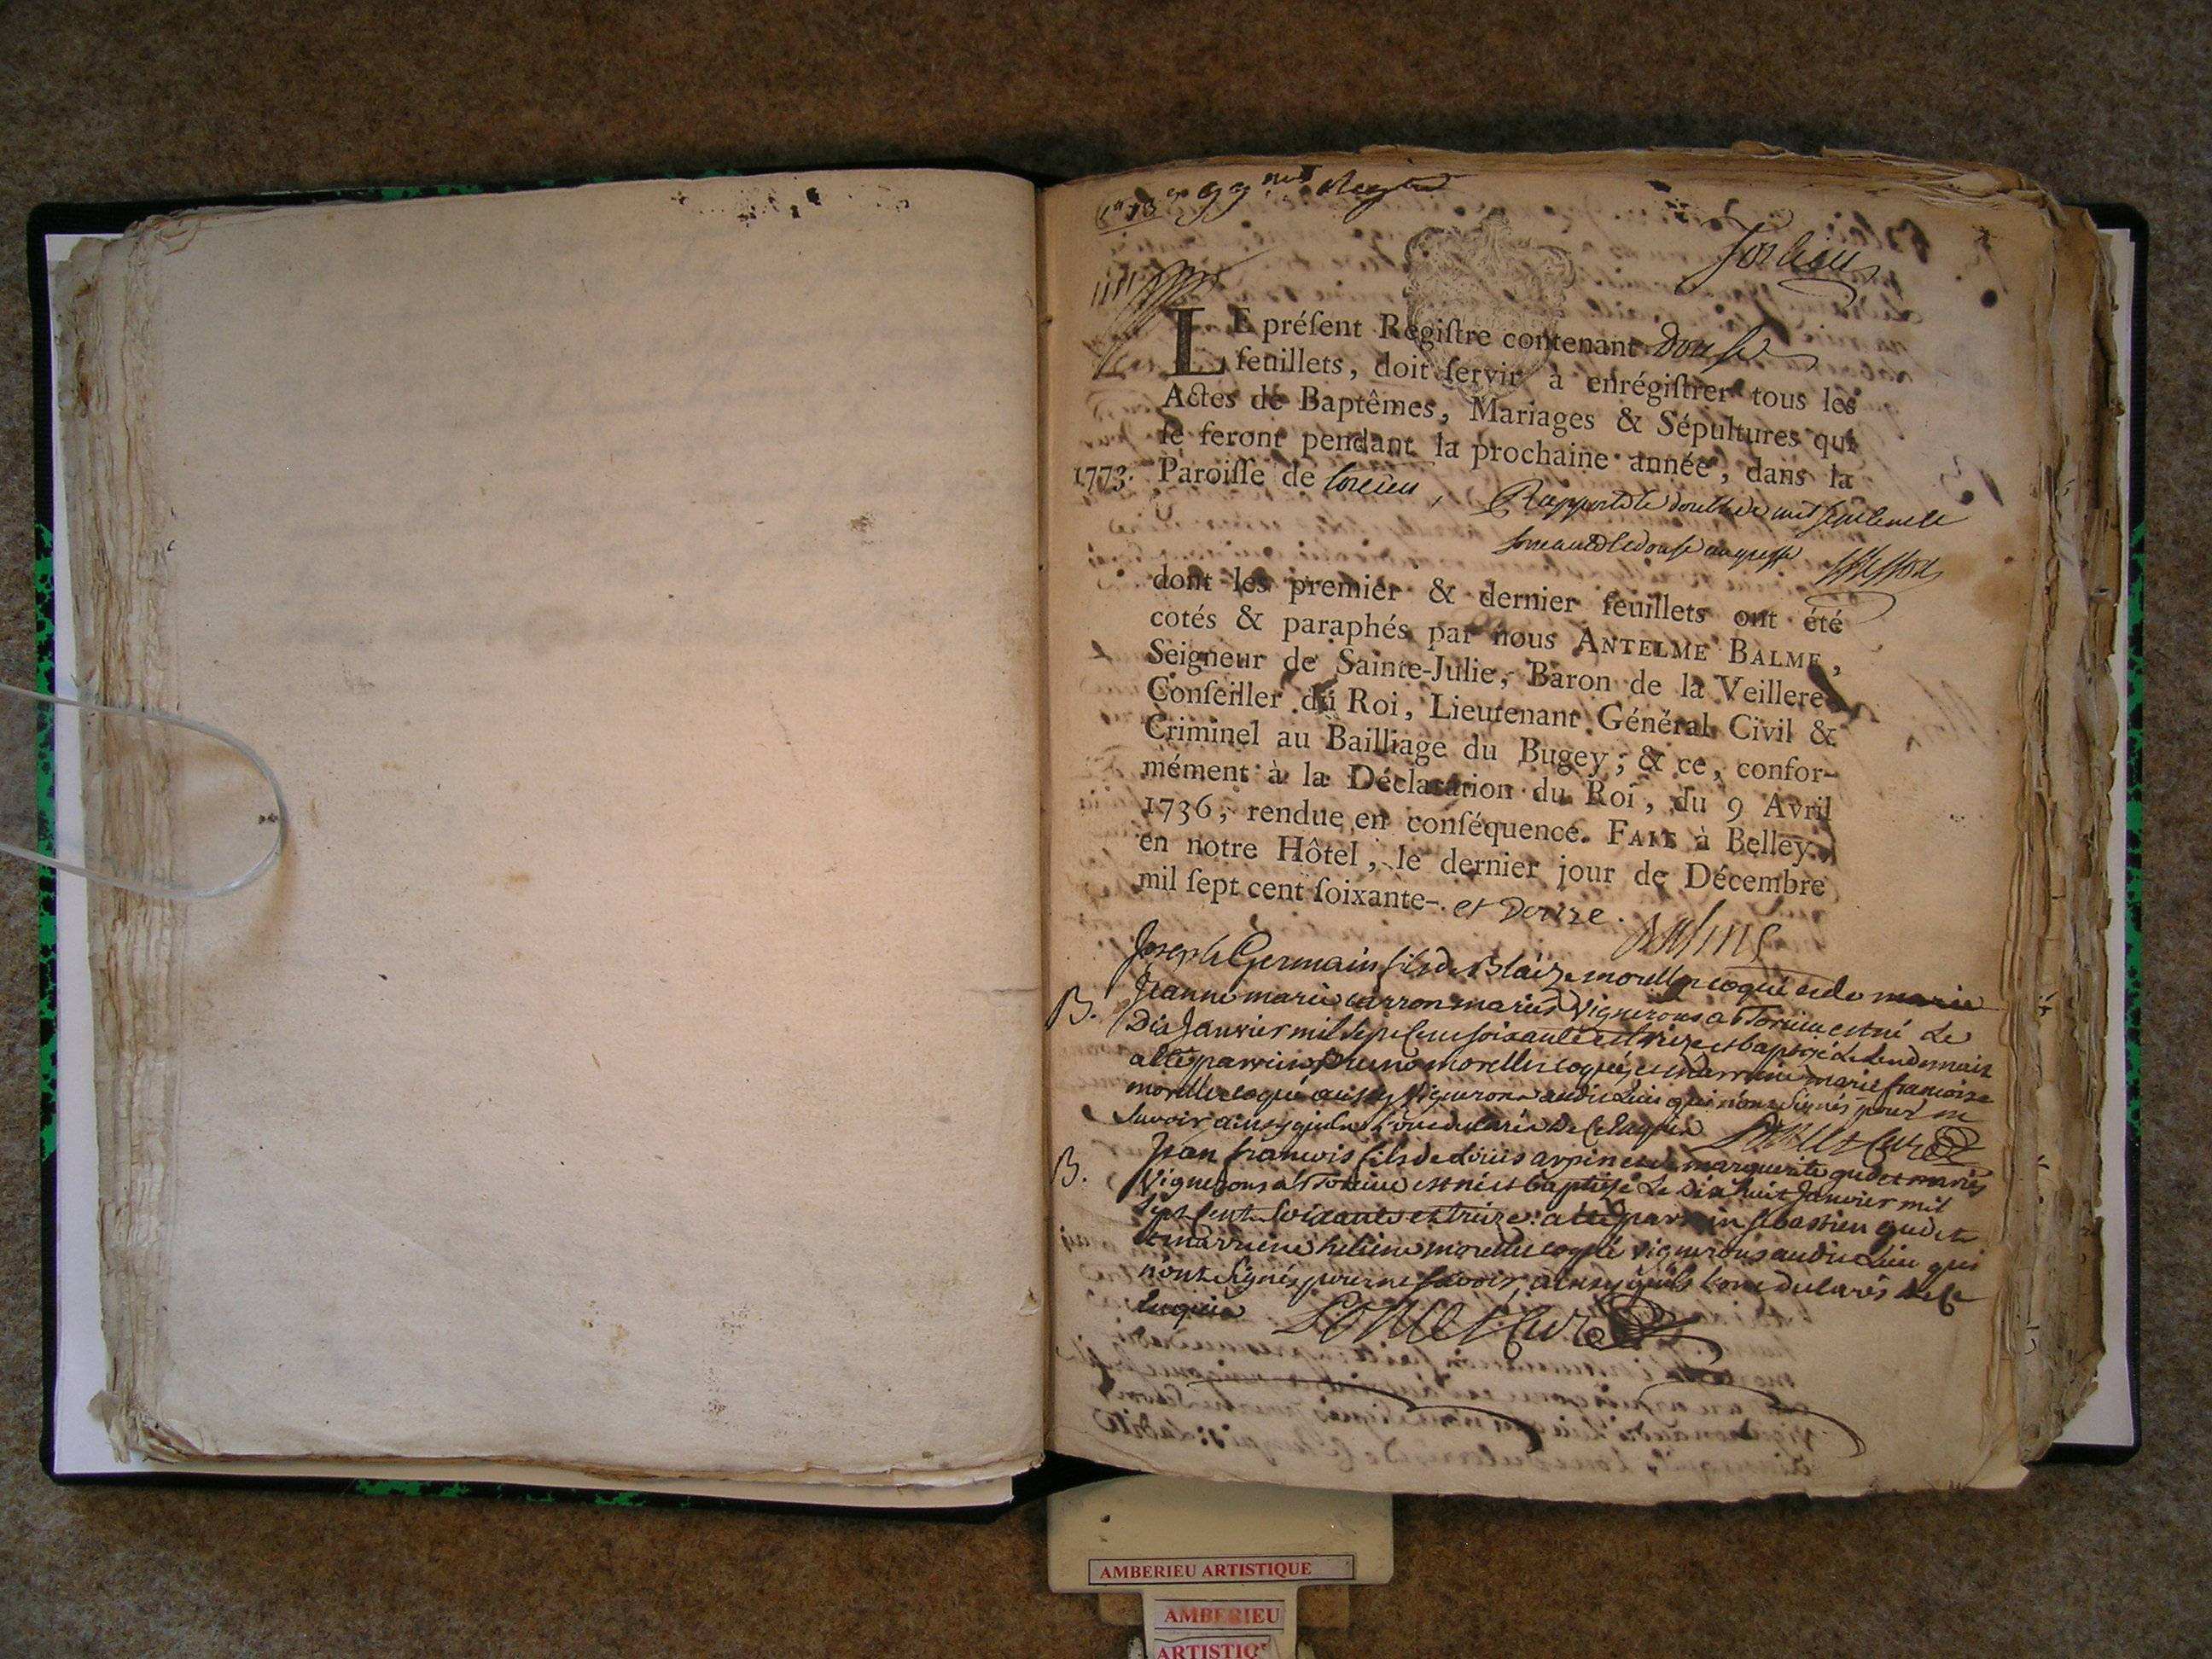 Torcieu
LE préſent Regiſtre contenant douſe
feuillets, doit ſervir à enrégiſtrer tous les
Actes de Baptêmes, Mariages & Sépultures qui
ſe feront pendant la prochaine année, dans la
1773. Paroiſſe de torcieu,
dont les premier & dernier feuillets ont été
cotés & paraphés par nous ANTELME BALME,
Seigneur de Sainte-Julie, Baron de la Veillere,
Conſeiller du Roi, Lieutenant Général Civil &
Criminel au Bailliage du Bugey; & ce, confor-
mément à la Déclaration du Roi, du 9 Avril
1736, rendue en conſéquence. FAIT à Belley
en notre Hôtel, le dernier jour de Décembre
mil ſept cent ſoixante-. et douze.
Balme
Joseph Germain fils de Blaize morellecoqué et de marie
B. Jeanne marie carron mariés Vignerons a Torcieu est né Le
Dix Janvier mil Sept Cent soixante et treize et baptisé Le Lendemain
a été parrein morelle coqué, et marreine marie francoise
morelle coqué aussy Vignerons audit Lieu qui n'ont Signés pour ne
Savoir ainsy qu'ils L'ont declarés de Ce Enquis Curé
B. Jean francois fils de Louis arpin et de marguerite gudet mariés
Vignerons a Torcieu est né et baptisé Le Dix huit Janvier mil
Sept Cent Soixante et treize: a été parrein sebastien gudet
et marreine heleine morelle coqué vignerons audit Lieu qui
n'ont Signés pour ne savoir, ainsy qu'ils L'ont declarés de Ce
Enquis Curé
AMBERIEU ARTISTIQUE
AMBERIEU
ARTISTIQ